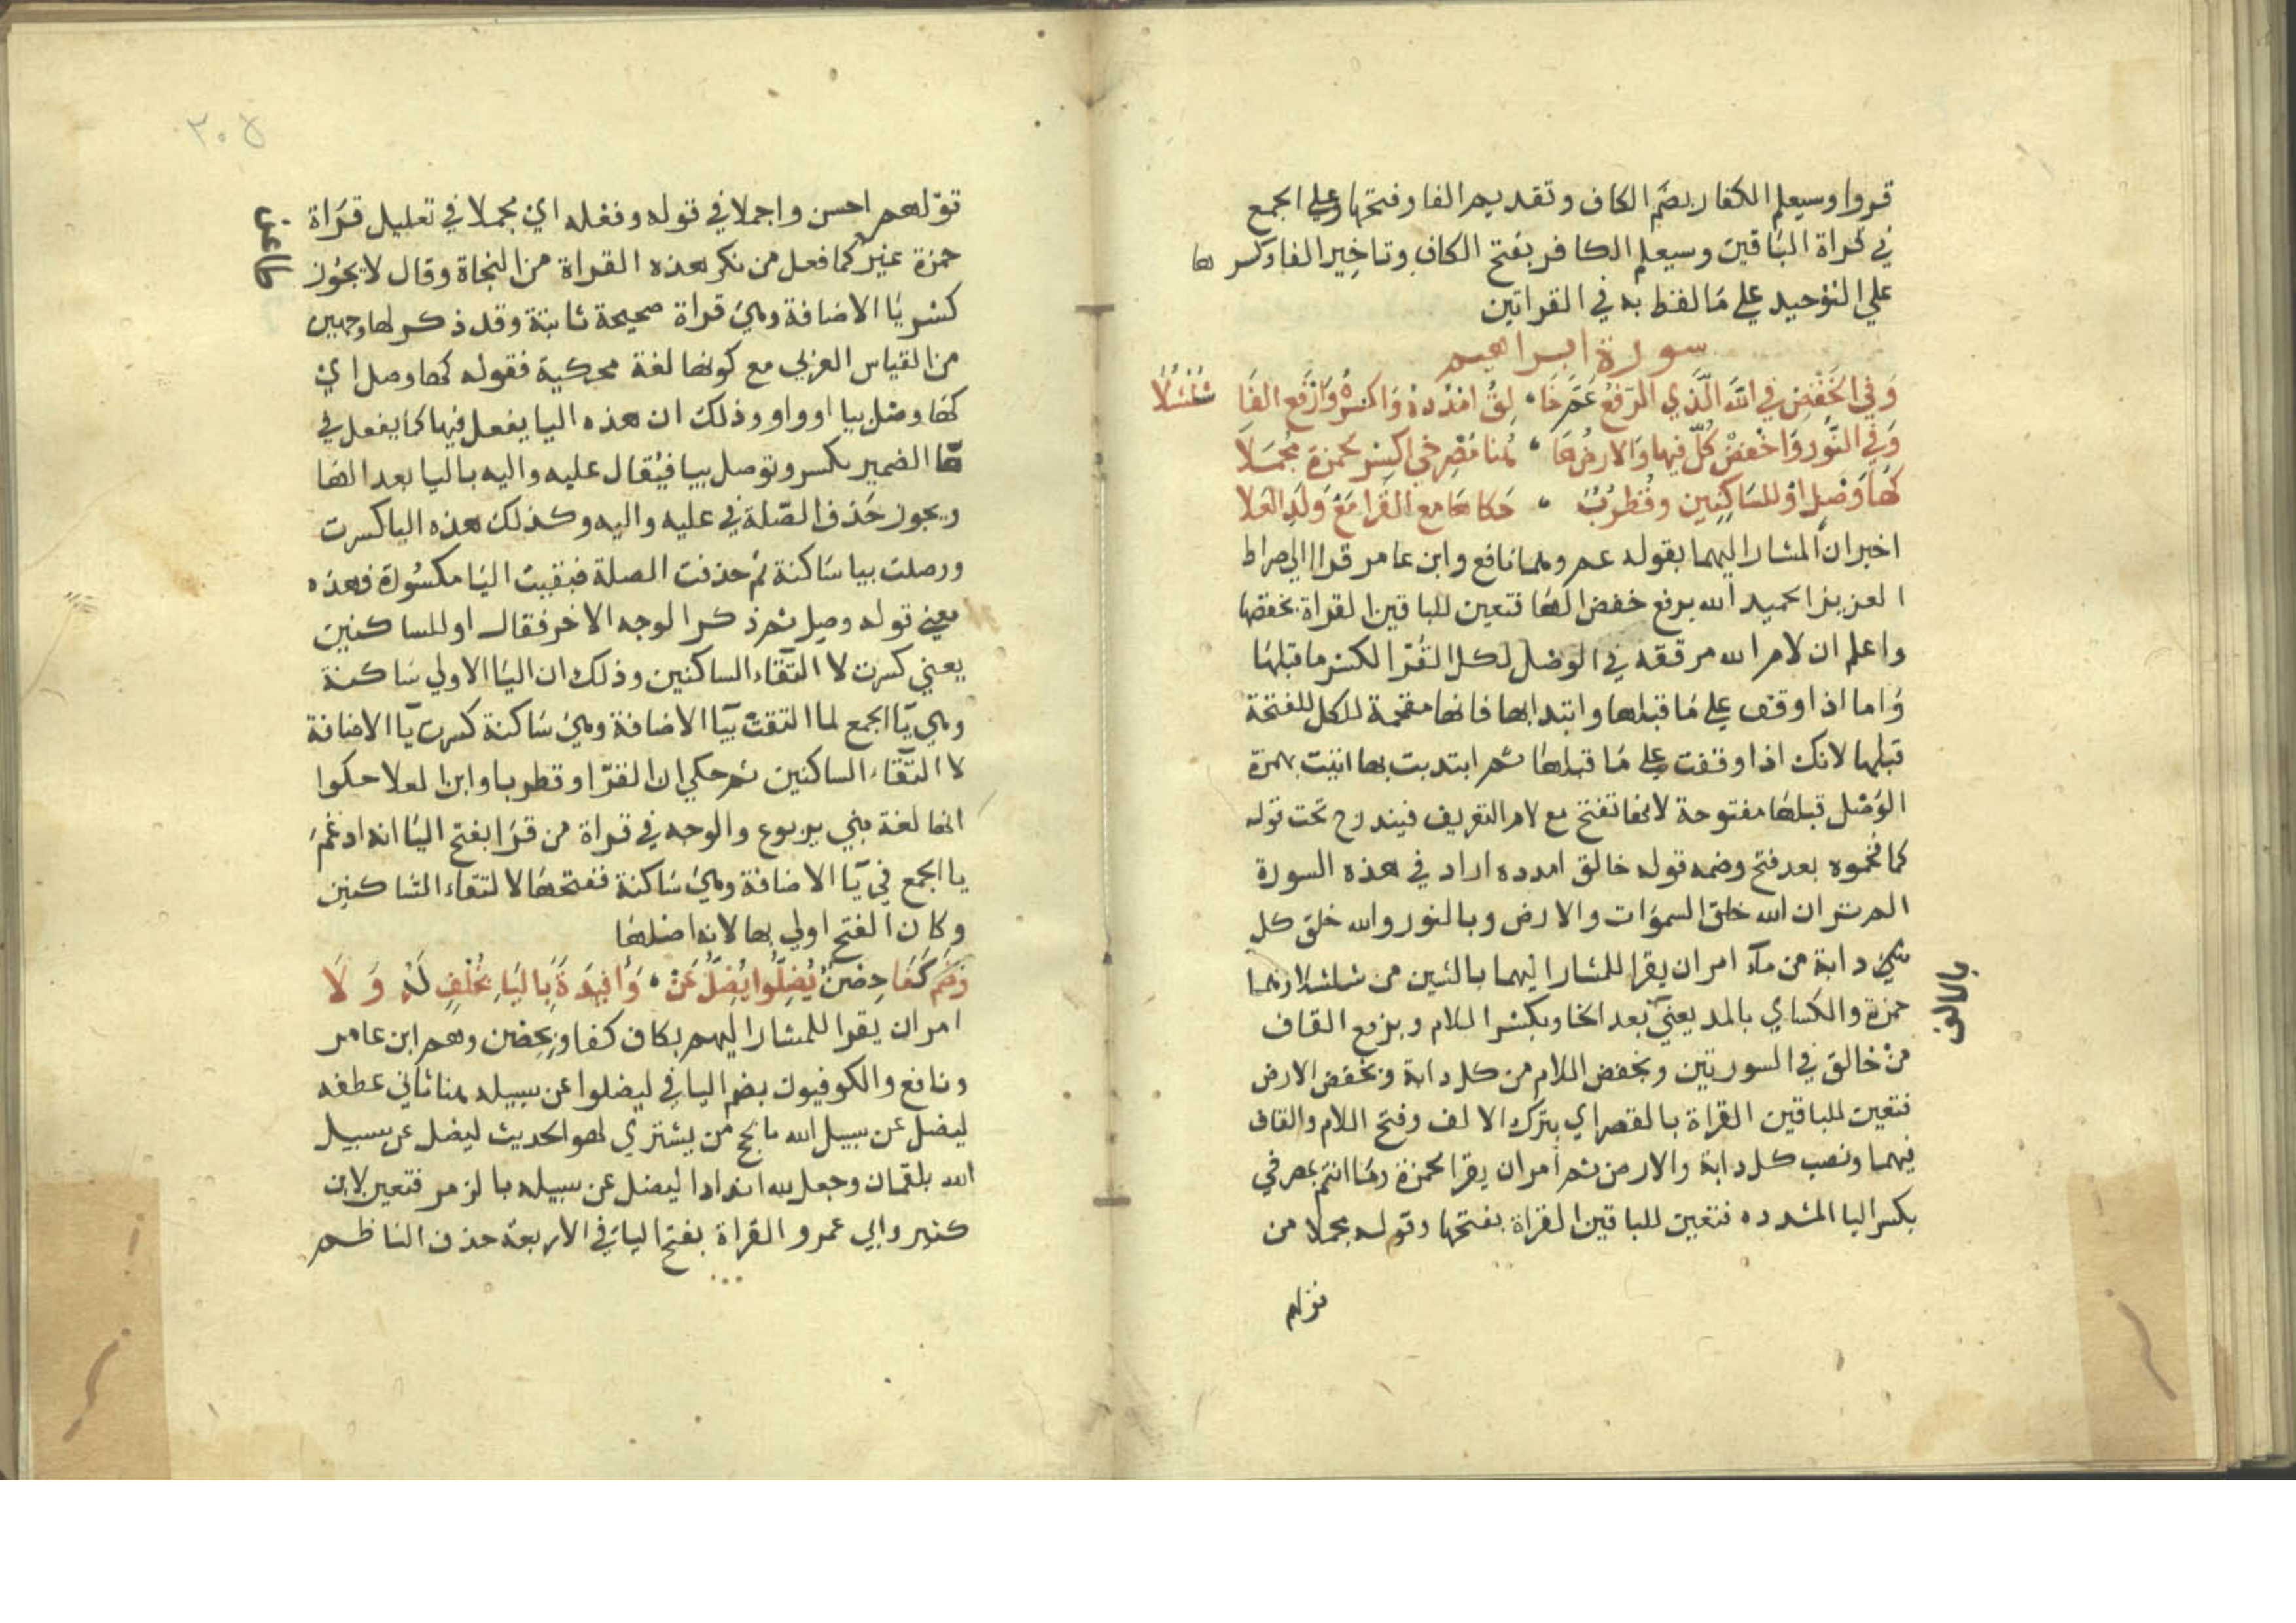 قروا وسيعلم الكفار بضم الكاف وتقديم الفا وفتحها وعلي الجمع
في قراة الباقين وسيعلم الكافر بفتح الكاف وتاخير الفا وكسرها
علي التوحيد علي ما لفظ به في القراتين
سورة ابراهيم
وَفي الخَفْضِ في اللَّه الَّذي الرَفعُ عَمَّ خَا ۰ لِقُ امْدُدهُ وَاكسِرْهُ وَارْفَعِ القَا شُلْشُلَا
وَفي النُّور وَاخْفِضْ كُلّ فيها والارضَ هَا ۰ هُنا مُصْرِخيَّ اكسِر لحمزة مُجْمَلَا
كهَا وَصْلٍ اوْ للسَاكِنِين وقُطْرُبٌ ۰ حَكاهَا مع الفَرا مَعْ وَلَدِ العَلا
اخبر ان المشار اليهما بقوله عم وهما نافع وابن عامر قرا الي صراط
العزيز الحميد الله برفع خفض الها فتعين للباقين القراة بخفضها
واعلم ان لام الله مرققة في الوصل لكل القرا لكسر ما قبلها
واما اذا وقف علي ما قبلها وابتدا بها فانها مفخمة للكل للفتحة
قبلها لانك اذا وقفت علي ما قبلها ثم ابتديت بها اتيت بهمزة
الوصل قبلها مفتوحة لانها تفتح مع لام التعريف فيندرج تحت قوله
كما فخموه بعد فتح وضمه قوله خالق امدده اراد في هذه السورة
الم تر ان الله خلق السموات والارض وبالنور والله خلق كل
شي دابة من ماء امر ان يقرا للمشار اليهما بالشين من شلشلا وهما
بالالف
حمزة والكساي بالمد يعني بعد الخا وبكسر اللام وبرفع القاف
من خالق في السورتين وبخفض اللام من كل دابة وبخفض الارض
فتعين للباقين القراة بالقصر اي بترك الالف وفتح اللام والقاف
فيهما ونصب كل دابة والارض ثم امر ان يقرا لحمزة وما انتم بمصرخي
بكسر اليا المشدده فتعين للباقين القراة بفتحها وقوله مجملا من
قولهم
٢٠٨
قولهم احسن واجملا في قوله وفعله اي مجملا في تعليل قراة
حمزة غير كما فعل من نكر هذه القراة من النحاة وقال لا يجوز
كسر يا الاضافة وهي قراة صحيحة ثابتة وقد ذكر لها وجهين
من القياس العربي مع كونها لغة محكية فقوله كها وصل اي
كها وصل بيا او واو وذلك ان هذه اليا يفعل فيها كما يفعل في
ها الضمير بكسر وتوصل بيا فيقال عليه واليه باليا بعد الها
ويجوز حذف الصلة في عليه واليه وكذلك هذه اليا كسرت
ووصلت بيا ساكنة ثم حذفت الصلة فبقيت اليا مكسورة فهذه
معني قوله وصل ثم ذكر الوجه الاخر فقال او للساكنين
يعني كسرت لا التقاء الساكنين وذلك ان اليا الاولي ساكنة
وهي يا الجمع لما التقت بيا الاضافة وهي ساكنة كسرت يا الاضافة
لا التقاء الساكنين ثم حكي ان الفرا وقطربا وابن العلا حكوا
انها لغة بني يربوع والوجه في قراة من قرا بفتح اليا انه ادغم
يا الجمع في يا الاضافة وهي ساكنة ففتحها لالتقاء الساكنين
وكان الفتح اولي بها لانه اصلها
وَضُمَّ كَفَا حِصْنٌ يُضِلُّوا يُضِلَّ عَنْ ۰ وَأفْئِدَةً بِاليَاءِ بخُلْفٍ لَهُ وَلَا
امر ان يقرا للمشار اليهم بكاف كفا وبحصن وهم ابن عامر
ونافع والكوفيون بضم اليا في ليضلوا عن سبيله هنا ثاني عطفه
ليضل عن سبيل الله بالحج من يشتري لهو الحديث ليضل عن سبيل
الله بلقمان وجعل لله اندادا ليضل عن سبيله بالزمر فتعين لابن
كثير وابي عمرو القراة بفتح اليا في الاربعة حذف الناظم